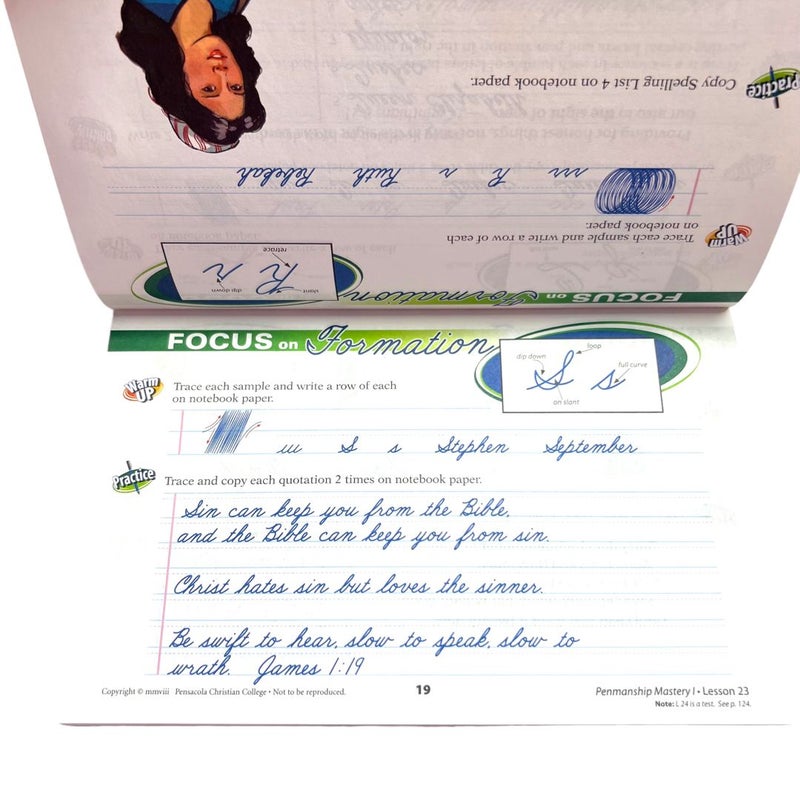 Practice
Copy Spelling List 4 on notebook paper.
m R r Ruth Rebekah
Warm UP
Trace each sample and write a row of each
on notebook paper.
slant
retrace
dip down
R r
FOCUS on Formation
FOCUS on Formation
dip down
loop
full curve
on slant
S s
Warm UP
Trace each sample and write a row of each
on notebook paper.
w S s Stephen September
Practice
Trace and copy each quotation 2 times on notebook paper.
Sin can keep you from the Bible,
and the Bible can keep you from sin.
Christ hates sin but loves the sinner.
Be swift to hear, slow to speak, slow to
wrath. James 1:19
Copyright © mmviii Pensacola Christian College • Not to be reproduced.
19
Penmanship Mastery I • Lesson 23
Note: L 24 is a test. See p. 124.